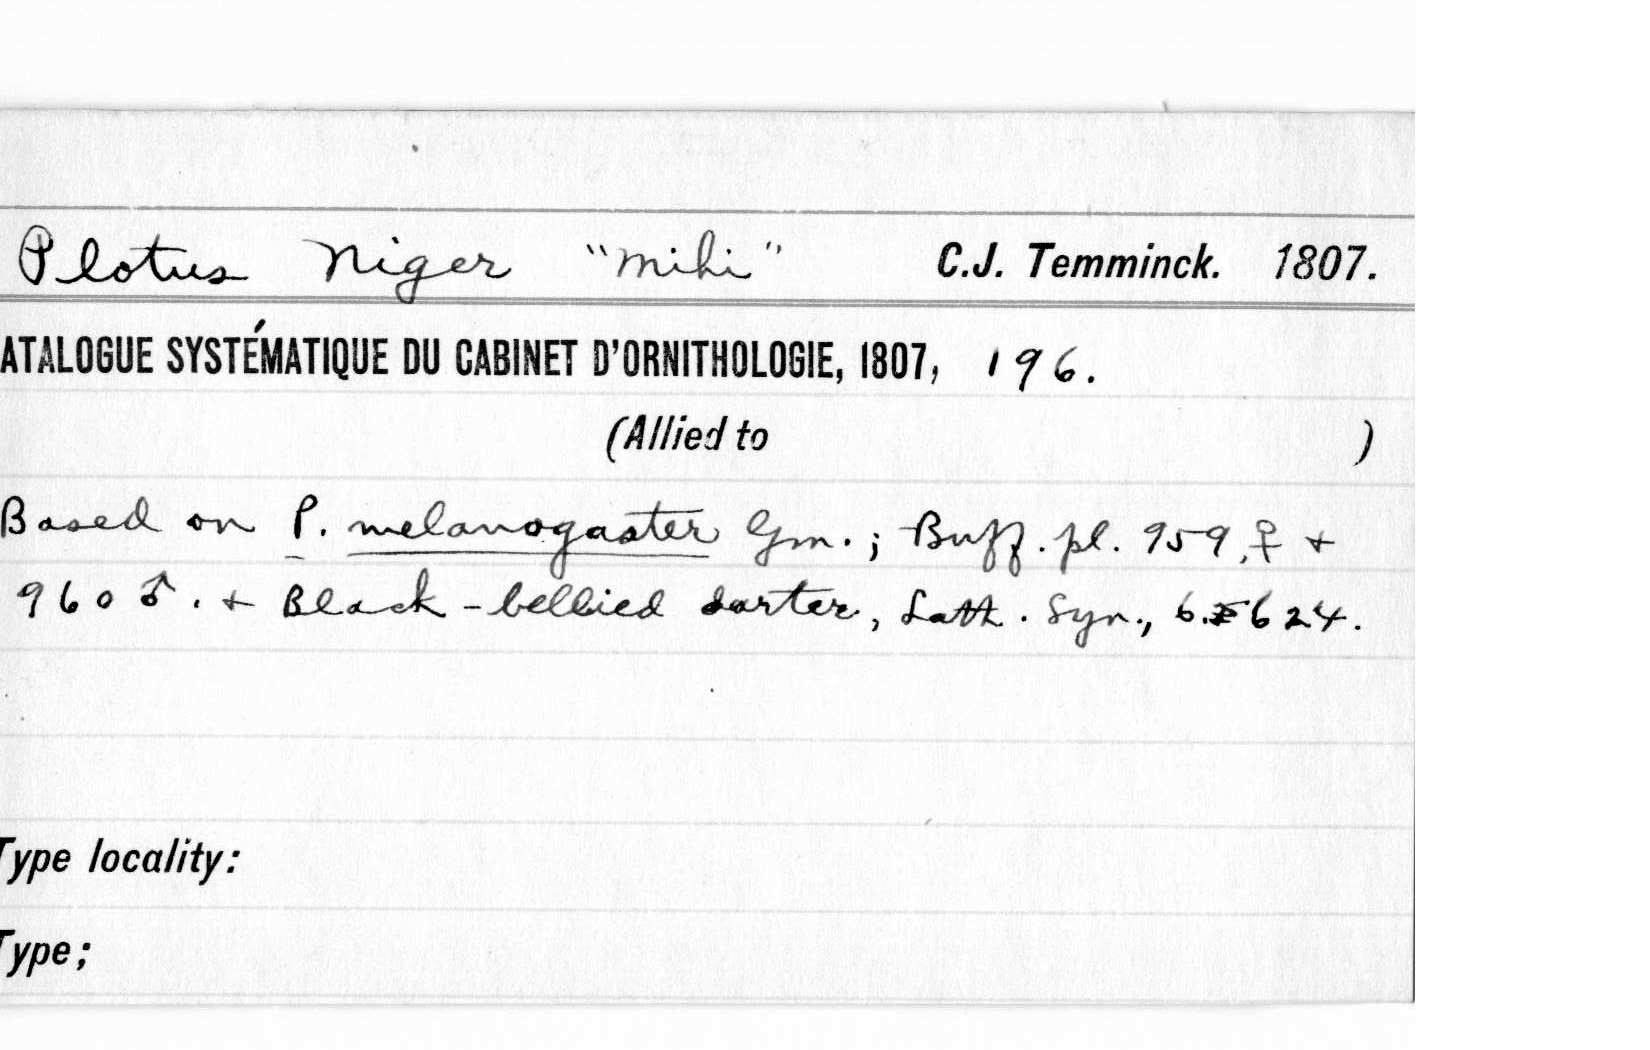 Plotus Niger "mihi" C.J. Temminck. 1807.
ATALOGUE SYSTÉMATIQUE DU CABINET D'ORNITHOLOGIE, 1807, 196.
(Allied to )
Based on P. melanogaster Gm.; Buff. pl. 959, ♀ +
960 ♂. + Black-bellied darter, Lath. Syn., 6. 624.
Type locality:
Type;